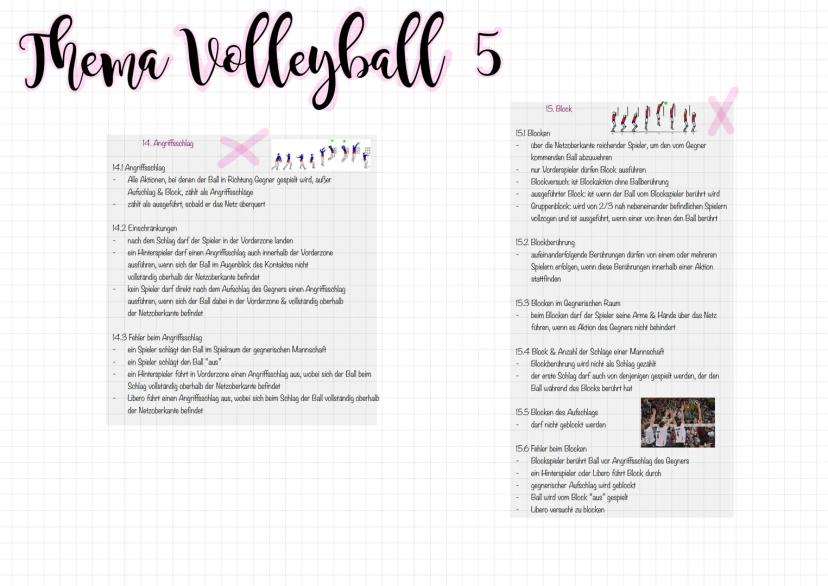 Thema Volleyball 5
14. Angriffsschlag
14.1 Angriffsschlag
- Alle Aktionen, bei denen der Ball in Richtung Gegner gespielt wird, außer
Aufschlag & Block, zählt als Angriffsschläge
- zählt als ausgeführt, sobald er das Netz überquert
14.2 Einschränkungen
- nach dem Schlag darf der Spieler in der Vorderzone landen
- ein Hinterspieler darf einen Angriffschlag auch innerhalb der Vorderzone
ausführen, wenn sich der Ball im Augenblick des Kontaktes nicht
vollständig oberhalb der Netzoberkante befindet
- kein Spieler darf direkt nach dem Aufschlag des Gegners einen Angriffschlag
ausführen, wenn sich der Ball dabei in der Vorderzone & vollständig oberhalb
der Netzoberkante befindet
14.3 Fehler beim Angriffsschlag
- ein Spieler schlägt den Ball im Spielraum der gegnerischen Mannschaft
- ein Spieler schlägt den Ball "aus"
- ein Hinterspieler führt in Vorderzone einen Angriffschlag aus, wobei sich der Ball beim
Schlag vollständig oberhalb der Netzoberkante befindet
- Libero führt einen Angriffschlag aus, wobei sich beim Schlag der Ball vollständig oberhalb
der Netzoberkante befindet
15. Block
15.1 Blocken
- über die Netzoberkante reichender Spieler, um den vom Gegner
kommenden Ball abzuwehren
- nur Vorderspieler dürfen Block ausführen
- Blockversuch: ist Blockaktion ohne Ballberührung
- ausgeführter Block: ist wenn der Ball vom Blockspieler berührt wird
- Gruppenblock: wird von 2/3 nah nebeneinander befindlichen Spielern
vollzogen und ist ausgeführt, wenn einer von ihnen den Ball berührt
15.2 Blockberührung
- aufeinanderfolgende Berührungen dürfen von einem oder mehreren
Spielern erfolgen, wenn diese Berührungen innerhalb einer Aktion
stattfinden
15.3 Blocken im Gegnerischen Raum
- beim Blocken darf der Spieler seine Arme & Hände über das Netz
führen, wenn es Aktion des Gegners nicht behindert
15.4 Block & Anzahl der Schläge einer Mannschaft
- Blockberührung wird nicht als Schlag gezählt
- der erste Schlag darf auch von denjenigen gespielt werden, der den
Ball während des Blocks berührt hat
15.5 Blocken des Aufschlags
- darf nicht geblockt werden
15.6 Fehler beim Blocken
- Blockspieler berührt Ball vor Angriffschlag des Gegners
- ein Hinterspieler oder Libero führt Block durch
- gegnerischer Aufschlag wird geblockt
- Ball wird vom Block "aus" gespielt
- Libero versucht zu blocken